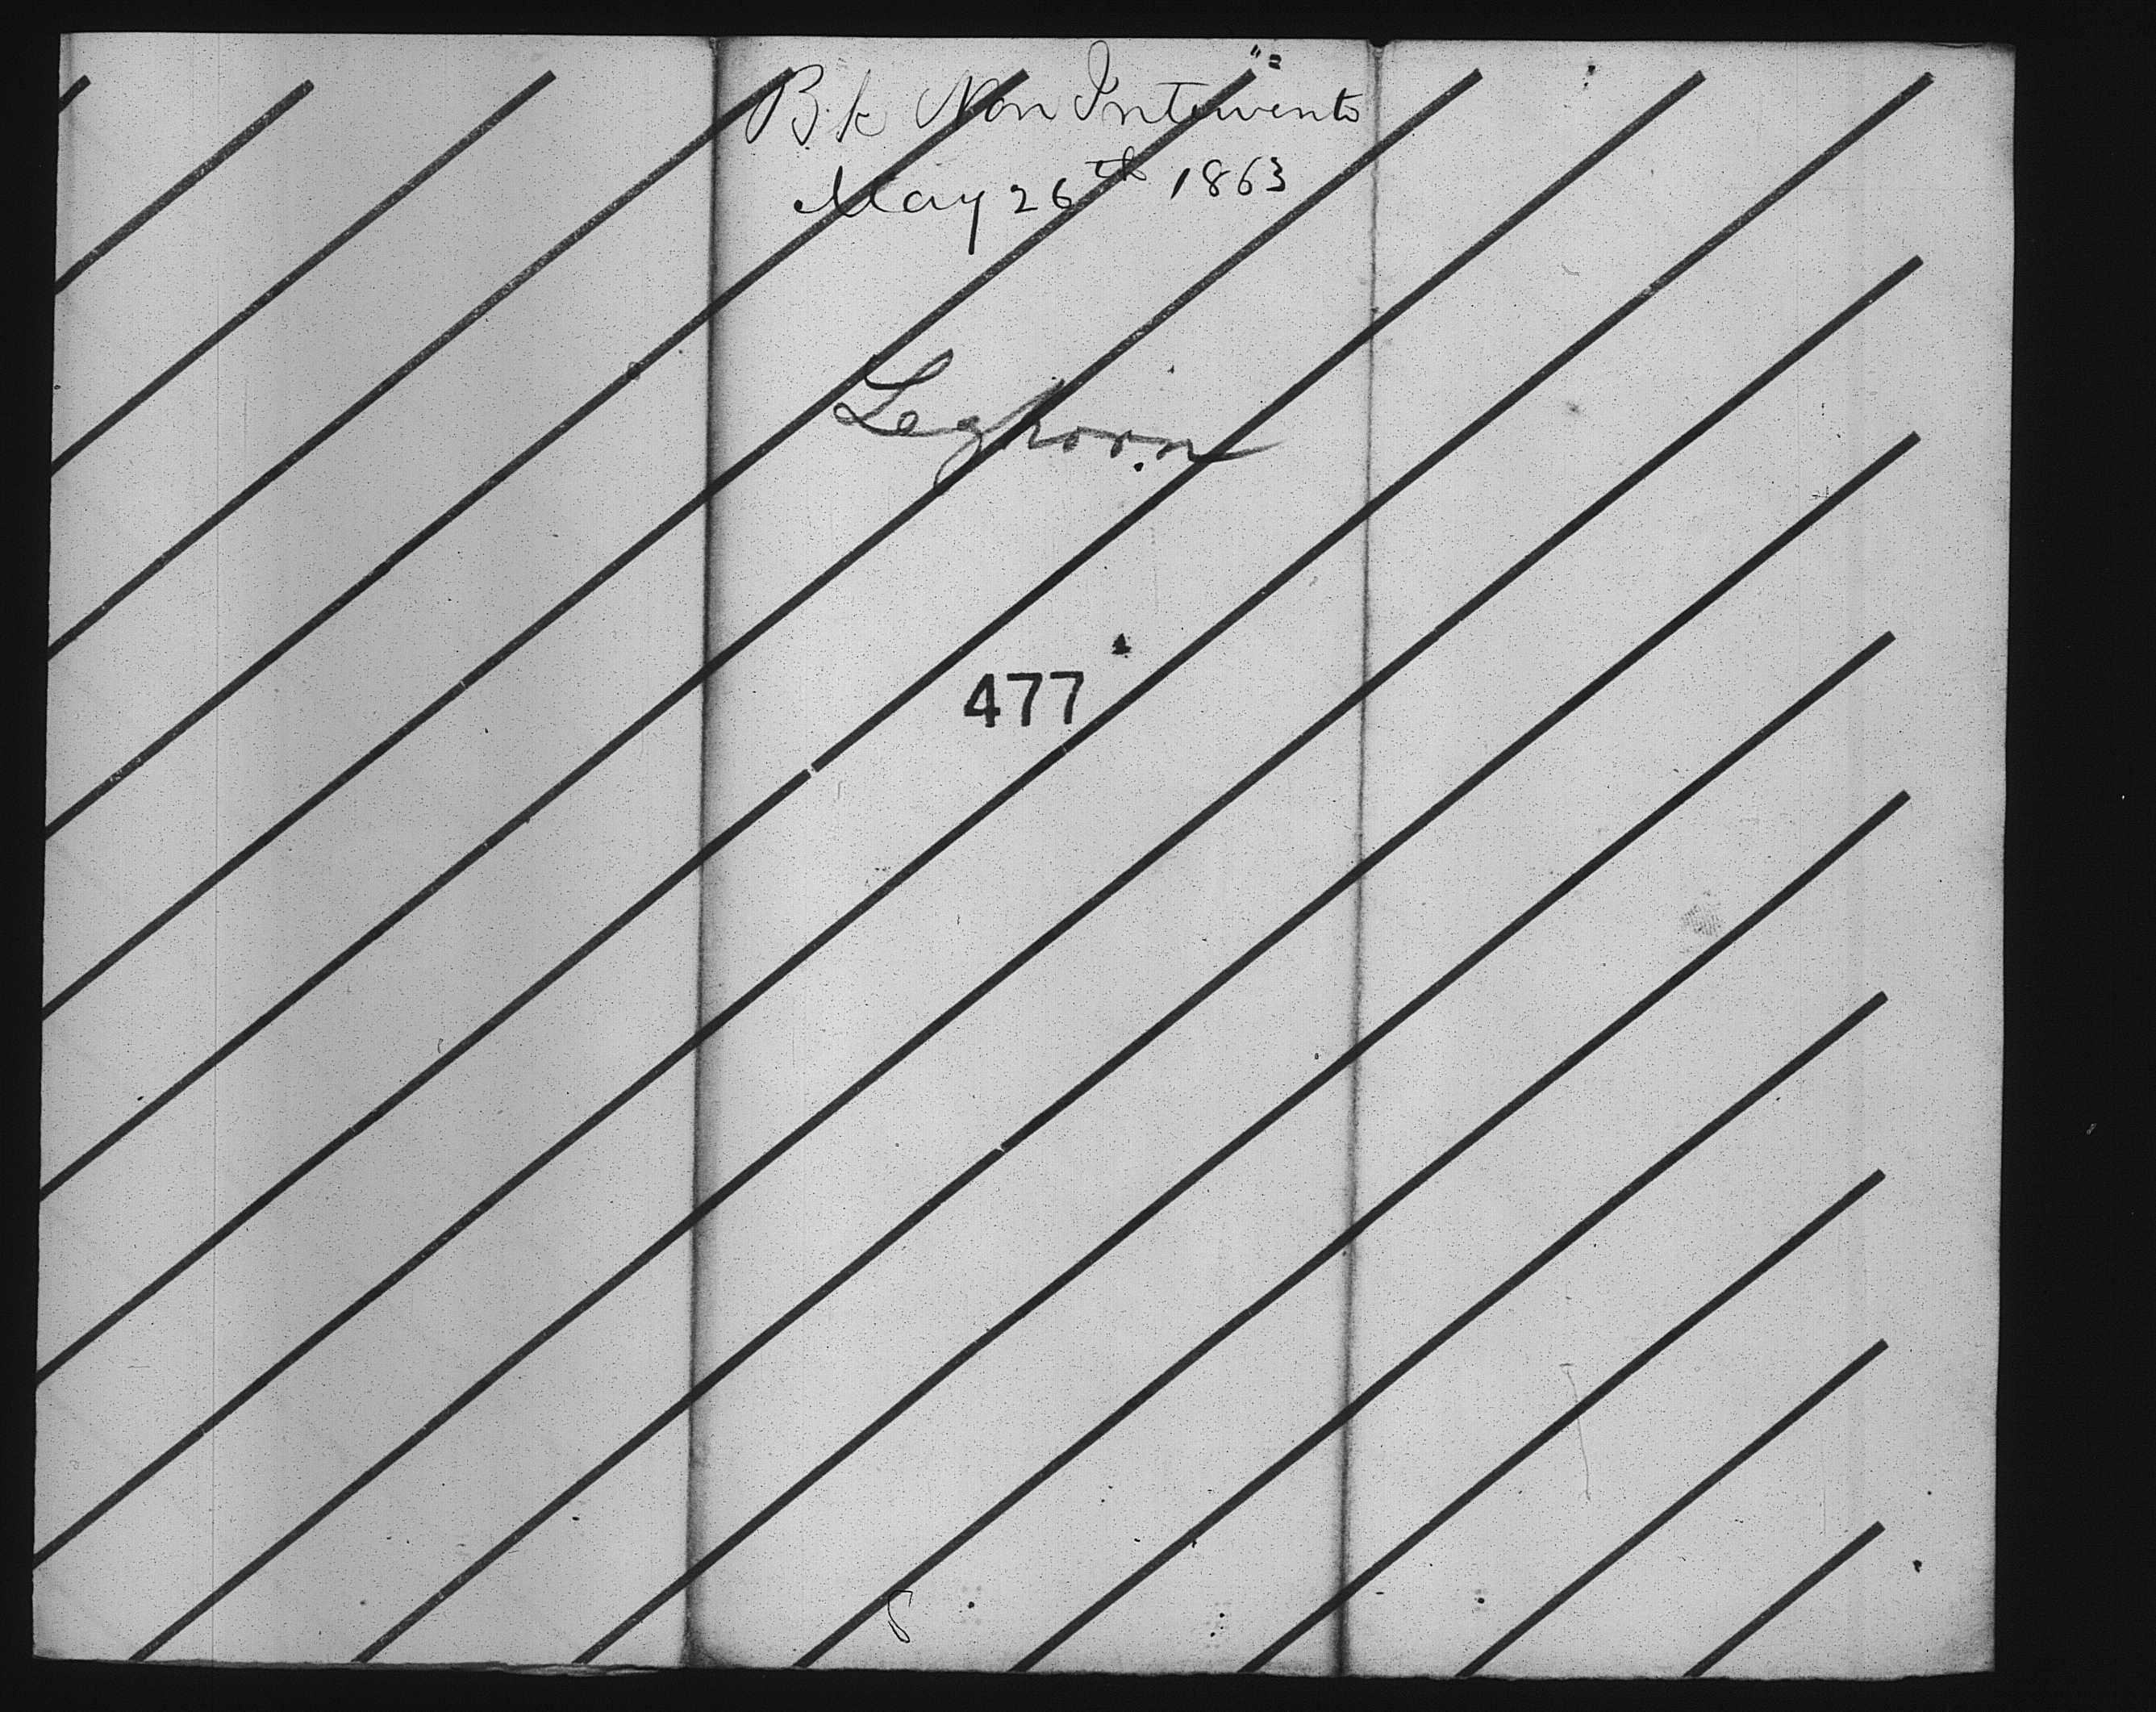 Bk Non Intervento
May 26th 1863
Leghorn
477
8